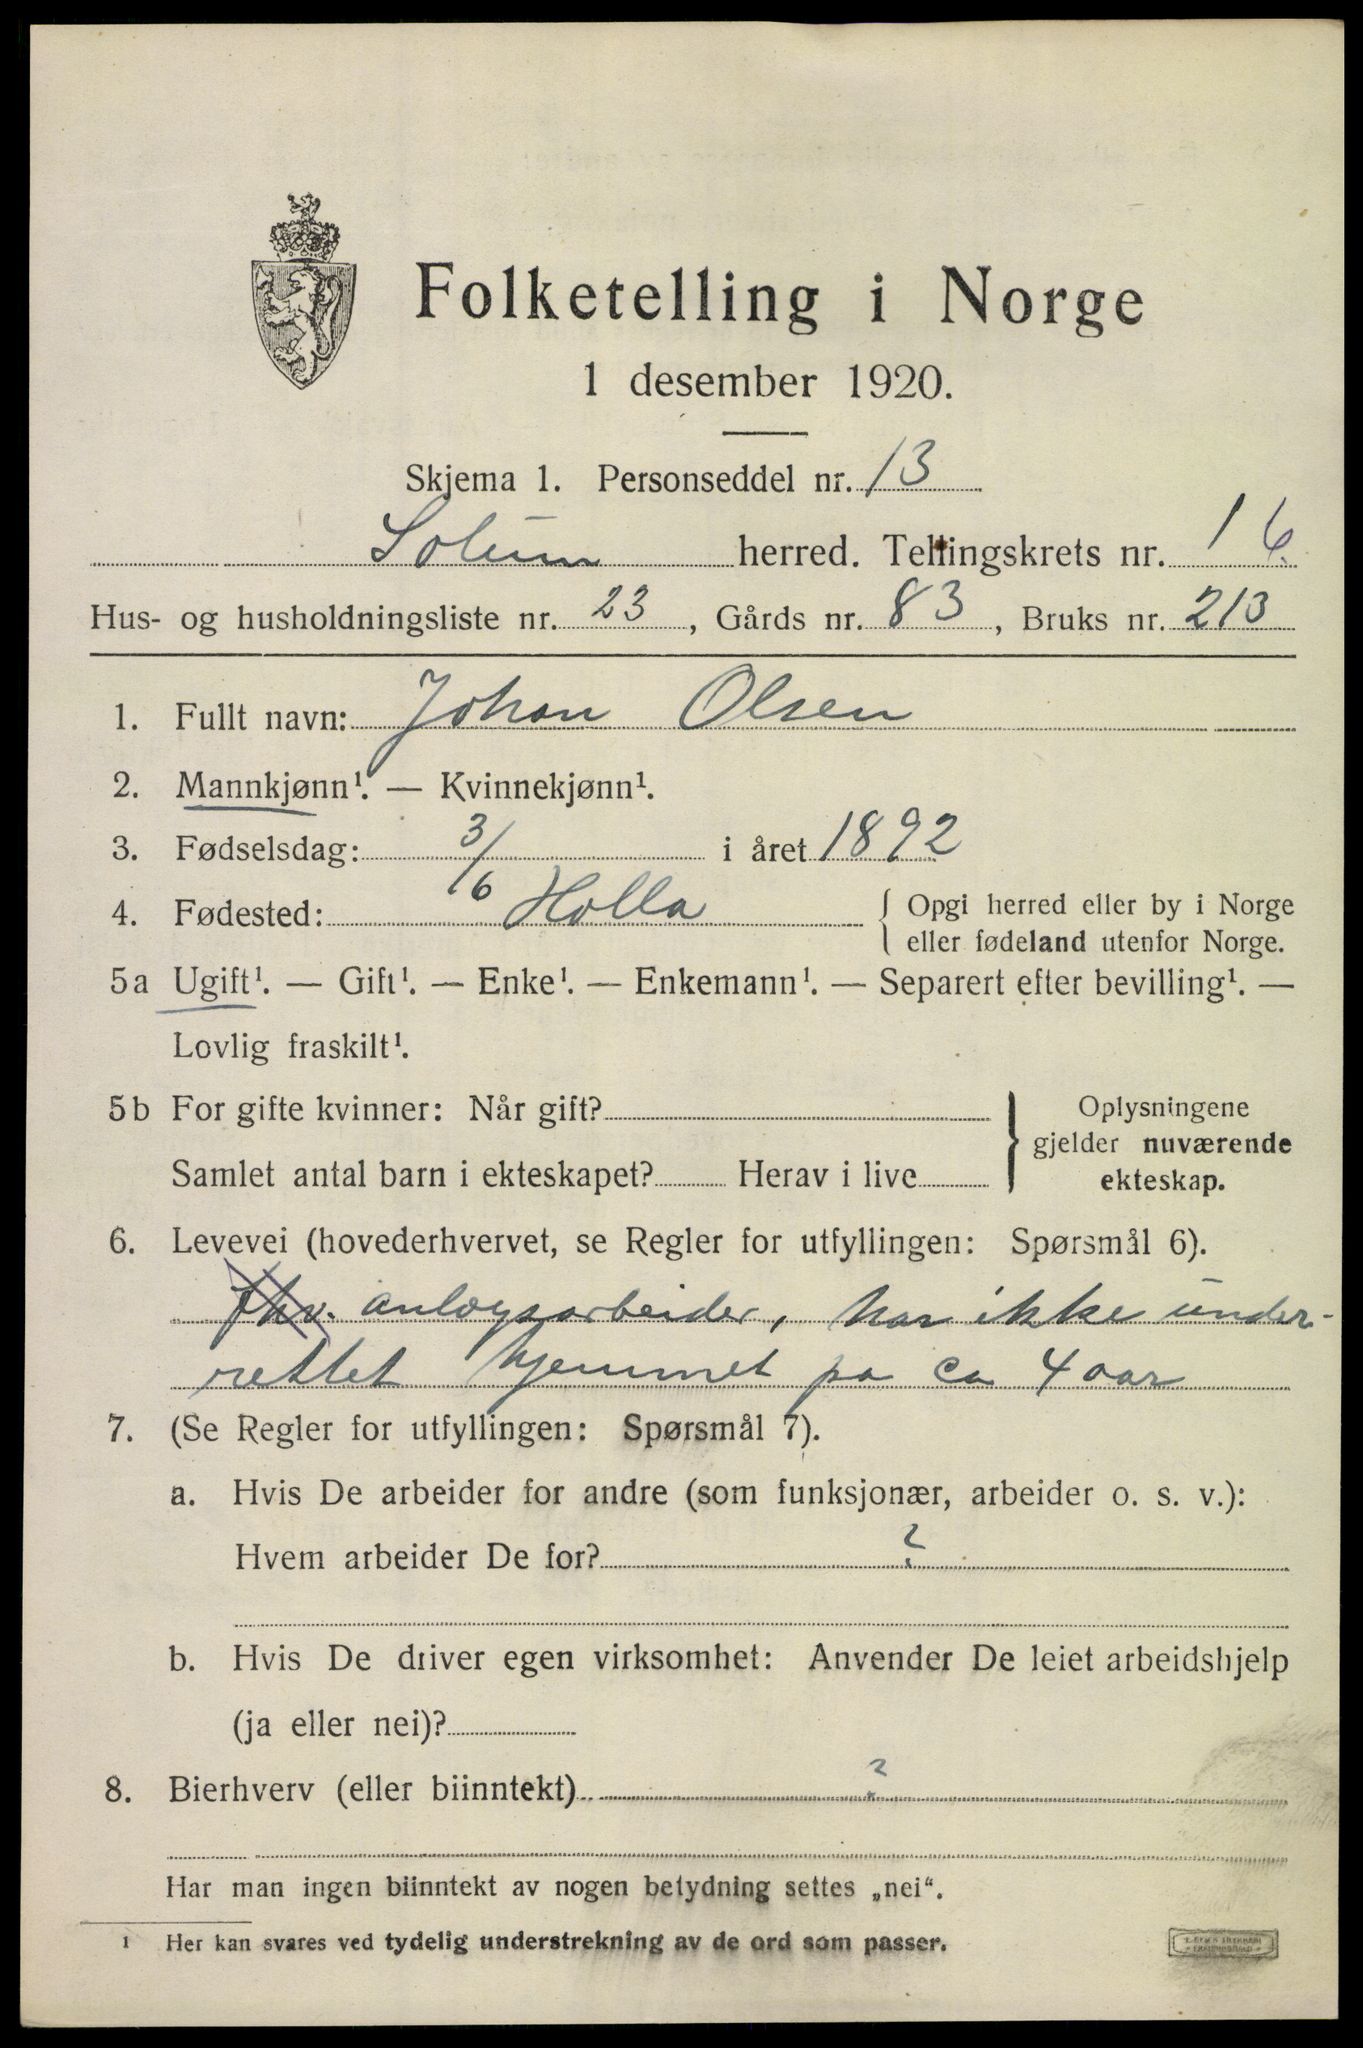 Folketelling i Norge
1 desember 1920.
Skjema 1. Personseddel nr. 13
Solum herred. Tellingskrets nr. 16.
Hus- og husholdningsliste nr. 23, Gårds nr. 83, Bruks nr. 213
1. Fullt navn: Johan Olsen
2. Mannkjønn¹. — Kvinnekjønn¹.
3. Fødselsdag: 3/6 i året 1892
4. Fødested: Holla { Opgi herred eller by i Norge
eller fødeland utenfor Norge.
5a Ugift¹. — Gift¹. — Enke¹. — Enkemann¹. — Separert efter bevilling¹. —
Lovlig fraskilt¹.
5b For gifte kvinner: Når gift?
Samlet antal barn i ekteskapet? Herav i live
} Oplysningene
gjelder nuværende
ekteskap.
6. Levevei (hovederhvervet, se Regler for utfyllingen: Spørsmål 6).
fhv. anlægsarbeider, har ikke under-
rettet hjemmet på ca 4 aar
7. (Se Regler for utfyllingen: Spørsmål 7).
a. Hvis De arbeider for andre (som funksjonær, arbeider o. s. v.):
Hvem arbeider De for? ?
b. Hvis De driver egen virksomhet: Anvender De leiet arbeidshjelp
(ja eller nei)?
8. Bierhverv (eller biinntekt) ?
Har man ingen biinntekt av nogen betydning settes „nei“.
¹ Her kan svares ved tydelig understrekning av de ord som passer.